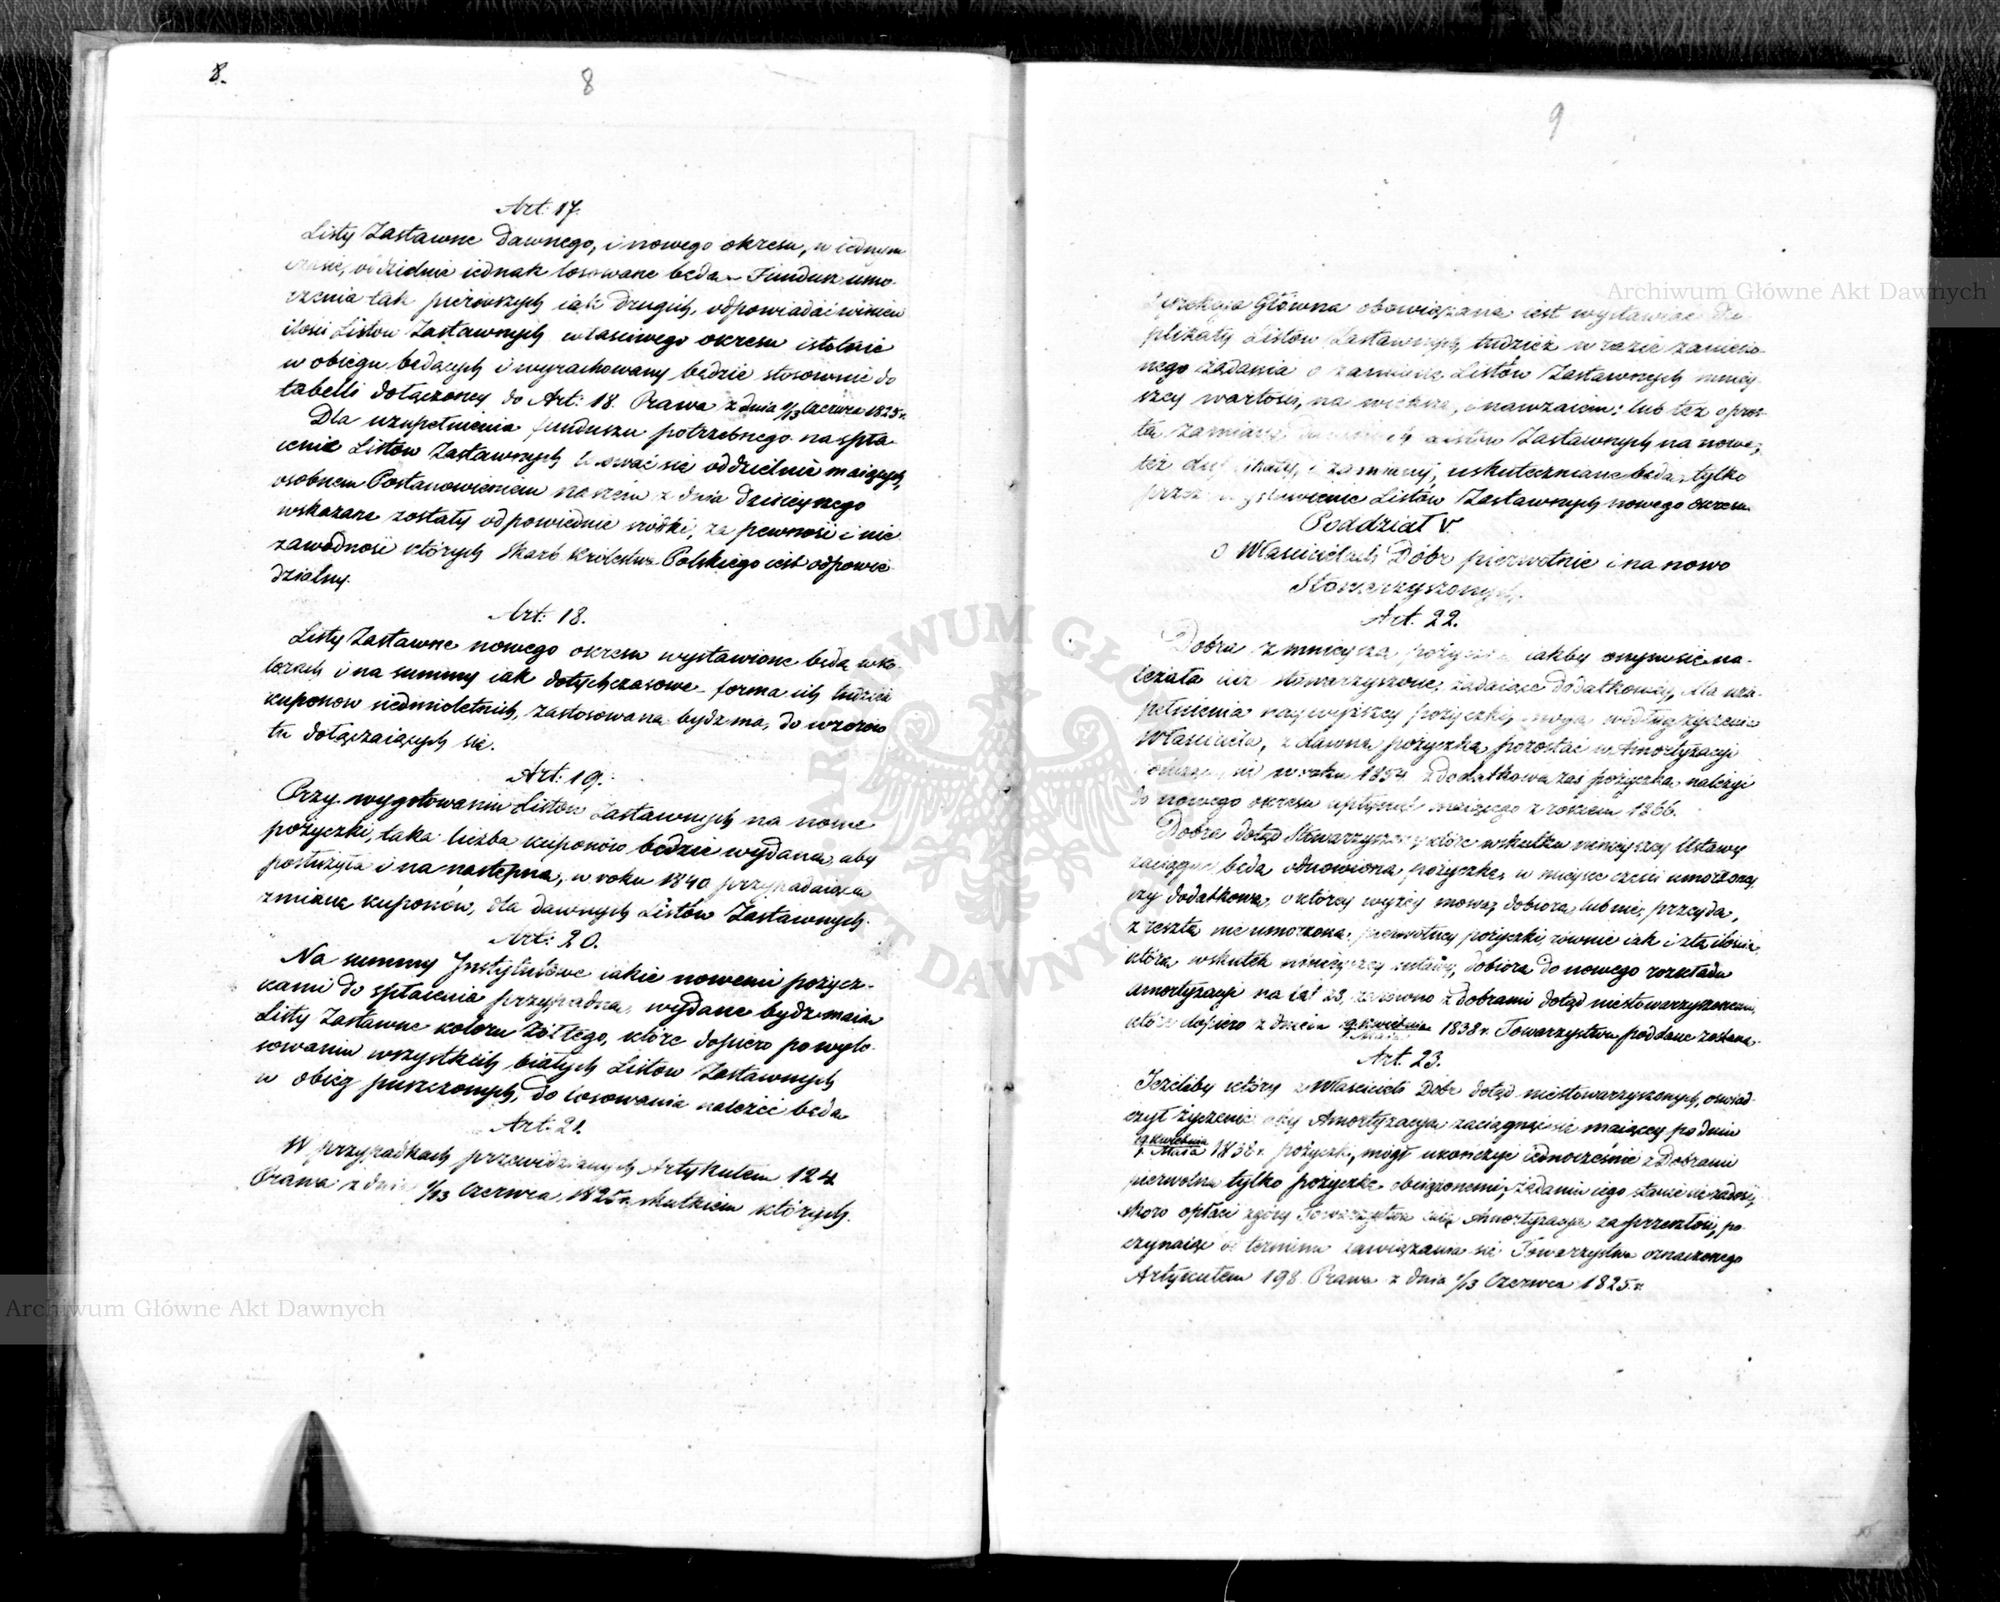 8.
8
Art: 17.
Listy Zastawne dawnego, i nowego okresu, w iednym
czasie, oddzielnie iednak losowane będą. Fundusz umo-
rzenia tak pierwszych iak drugich, odpowiadać winien
ilości Listów Zastawnych właściwego okresu istotnie
w obiegu będących i wyrachowany będzie stosownie do
tabelli dołączoney do Art: 18. Prawa z dnia 1/13 Czerwca 1825 r.
Dla uzupełnienia funduszu potrzebnego na spła-
cenie Listów Zastawnych losować się oddzielnie maiących,
osobnem Postanowieniem naszem z dnia dzisieyszego
wskazane zostały odpowiednie srodki, za pewność i nie-
zawodność których Skarb Królestwa Polskiego iest odpowie-
dzialny.
Art: 18.
Listy Zastawne nowego okresu wystawione będą w ko-
lorach i na summy iak dotychczasowe - forma ich tudzież
kuponow siedmioletnich, zastosowana bydź ma, do wzorów
tu dołączaiących się.
Art: 19.
Przy wygotowaniu Listów Zastawnych na nowe
pożyczki, taka liczba kuponów będzie wydana, aby
posłużyła i na następną, w roku 1840 przypadaiącą
zmianę kuponów, dla dawnych Listów Zastawnych.
Art: 20.
Na summy Instytutowe iakie nowemi pożycz-
kami do spłacenia przypadną, wydane bydź maią
Listy Zastawne koloru Żółtego, które dopiero po wylo-
sowaniu wszystkich białych Listów Zastawnych
w obieg puszczonych, do losowania należeć będą
Art: 21.
W przypadkach przewidzianych Artykułem 124
Prawa z dnia 1/13 Czerwca 1825 r. skutkiem których
9
Dyrekcya Główna obowiązana iest wystawiać du-
plikaty Listów Zastawnych, tudzież w razie zaniesio-
nego żądania o zamianę Listów Zastawnych mniey-
szey wartości, na większe, i nawzaiem: lub też o pros-
tą zamianę dawnych Listów Zastawnych na nowe,
też duplikaty, i zamiany, uskuteczniane będą tylko
przez wystawienie Listów Zastawnych nowego okresu.
Poddział V.
o Właścicielach Dóbr pierwotnie i na nowo
Stowarzyszonych.
Art. 22.
Dobra z mnieyszą pożyczką iakby onym się na-
leżała iuż stowarzyszone, żądaiące dodatkowéy, dla uzu-
pełnienia naywyższey pożyczki, mogą według życzenia
Właściciela, z dawną pożyczką pozostać w Amortyzacyi
w roku 1854 z dodatkową zaś pożyczką należeć
do nowego okresu upłynąć maiącego z rokiem 1866.
Dobra dotąd Stowarzyszone, które w skutku ninieyszey Ustawy
zaciągać będą odnowioną pożyczkę, w mieysce części umorzoney,
czy dodatkową, o którey wyżéy mowa, dobiorą, lub nie, przeydą,
z resztą nieumorzoną pierwotney pożyczki, równie iak i z tą ilością,
którą w skutek ninieyszey ustawy, dobiorą do nowego rozkładu
amortyzacyi na lat 28, zarówno z dobrami dotąd niestowarzyszonemi,
które dopiero z dniem 19 Kwietnia/1 Maia 1838 r. Towarzystwu poddane zostaną.
Art. 23.
Jeżeliby który z Właścicieli Dóbr dotąd niestowarzyszonych, oświad-
czył życzenie aby Amortyzacya zaciągnąć się maiącey po dniu
19 Kwietnia/1 Maia 1838 r. pożyczki, mógł ukończyć iednocześnie z Dobrami
pierwotną tylko pożyczką obciążonemi, żądaniu iego stanie się zadość,
skoro opłaci z góry Towarzystwu całą Amortyzacyę za przeszłość, po-
czynaiąc od terminu zawiązania się Towarzystwa oznaczonego
Artykułem 198 Prawa z dnia 1/13 Czerwca 1825 r.
Archiwum Główne Akt Dawnych
Archiwum Główne Akt Dawnych
ARCHIWUM GŁÓWNE AKT DAWNYCH